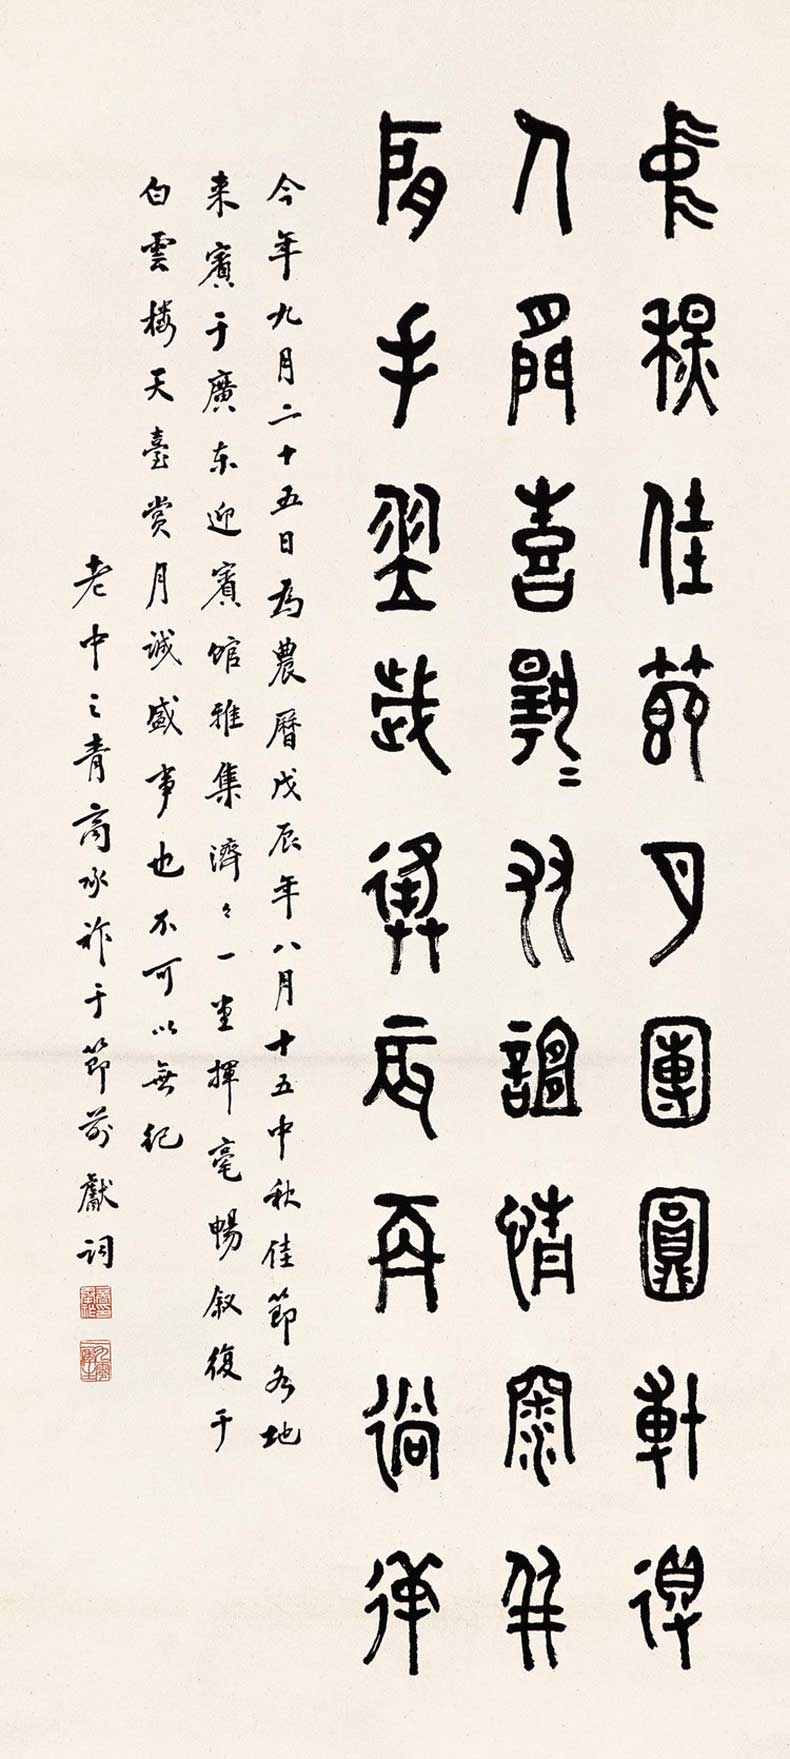 中秋佳節月團圓得
人間喜友誼情深并
肩手翌歲辰再徜徉
今年九月二十五日為農曆戊辰年八月十五中秋佳節各地
来賓于廣东迎賓馆雅集濟々一堂揮毫暢叙復于
白雲楼天臺赏月诚盛事也不可以無纪
老中之青商承祚于節前獻词